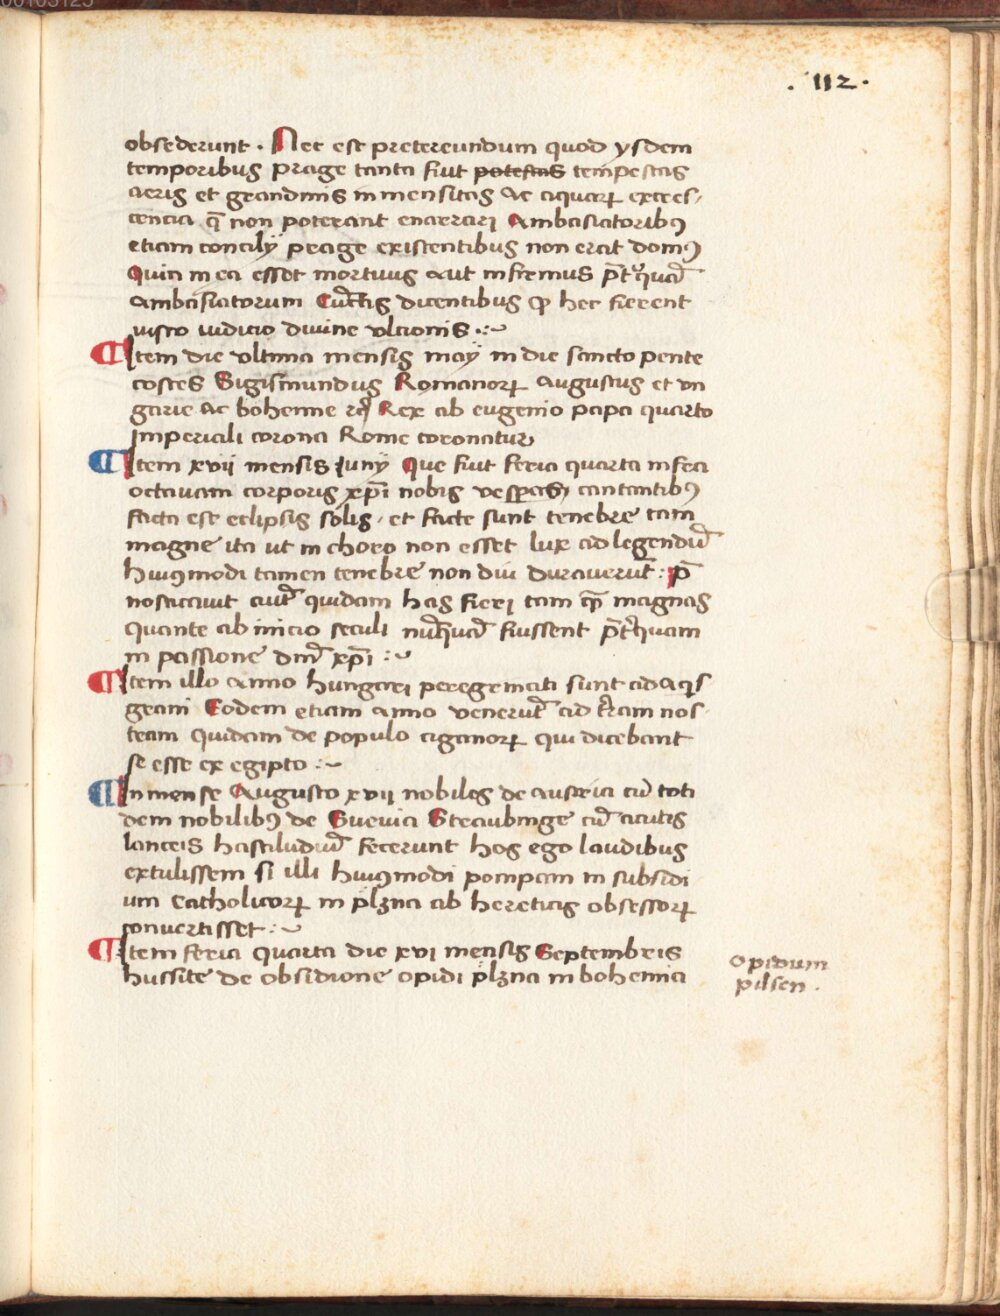 00103125
. 112 .
obsederunt . Nec est pretereundum quod ysdem
temporibus prage tanta fuit potestas tempestas
aeris et grandinis inmensitas ac aquarꝝ excres-
cencia q̄ non poterant enarrari Ambasiatoribꝰ
etiam concilÿ prage existentibus non erat domꝰ
Quin in ea esset mortuus aut infirmus
Ambasiatorum Cūctis dicentibus ꝙ hec fierent
iusto iudicio diuine vlcionis .:~
¶ Item die vltima mensis maÿ in die sancto pente
costes Sigismundus Romanorꝝ augustus et vn
garie ac bohemie Rex ab eugenio papa quarto
Imperiali corona Rome coronatur
¶ Item xvii mensis Iunÿ Que fuit feria quarta infra
octauam corporis xp̄i nobis vesperas cantantibꝰ
facta est eclipsis solis, et facte sunt tenebre tam
magne ita ut in choro non esset lux ad legendū
huiꝰmodi tamen tenebre non diu durauerūt : p̄
nosticauit autē quidam has fieri tam qm̄ magnas
quante ab inicio seculi nūquā fuissent p̄tꝗuam
in passione dnī xp̄i :~
¶ Item illo anno hungari peregrinati sunt ad aqis
grani Eodem etiam anno venerūt ad t̄ram nos-
tram quidam de populo ciganorꝝ qui dicebant
se esse ex egipto :~
¶ In mense Augusto xvii nobiles de austria cū toti
dem nobilibꝰ de Sueuia Straubinge cū acutis
lanceis hastiludiū fecerunt hos ego laudibus
extulissem si illi huiꝰmodi pompam in subsidi
um Catholicorꝝ in plzna ab hereticis obsessorꝝ
conuertisset :~
¶ Item feria quarta die xvi mensis Septembris
hussite de obsidione opidi plzna in bohemia
opidum
pilsen .